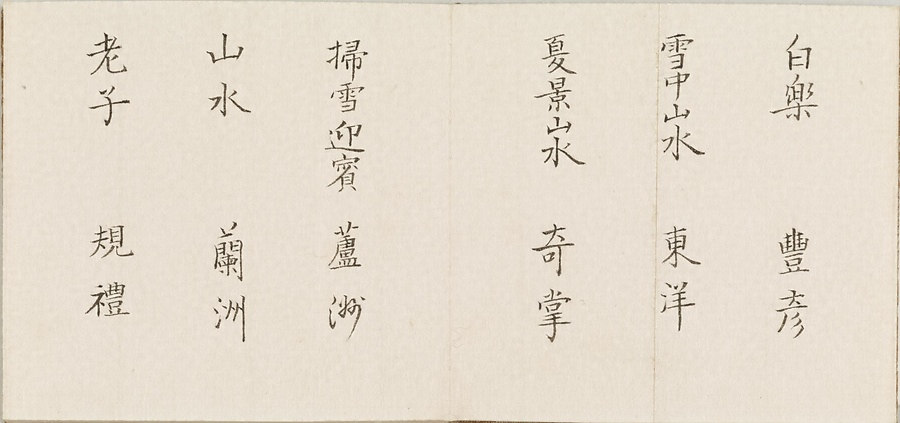 白楽 豐彦
雪中山水 東洋
夏景山水 奇掌
掃雪迎賓 蘆洲
山水 蘭洲
老子 規禮